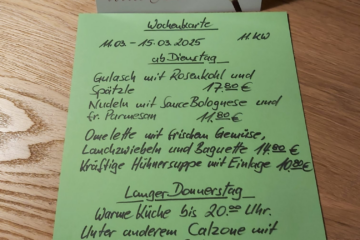 Wochenkarte
11.03 - 15.03.2025 11.KW
ab Dienstag
Gulasch mit Rosenkohl und
Spätzle 17.80€
Nudeln mit Sauce Bolognese und
fr. Parmesan 11.80€
Omelette mit frischem Gemüse,
Lauchzwiebeln und Baguette 14.80€
Kräftige Hühnersuppe mit Einlage 10.80€
Langer Donnerstag
Warme Küche bis 20.00 Uhr.
Unter anderem Calzone mit